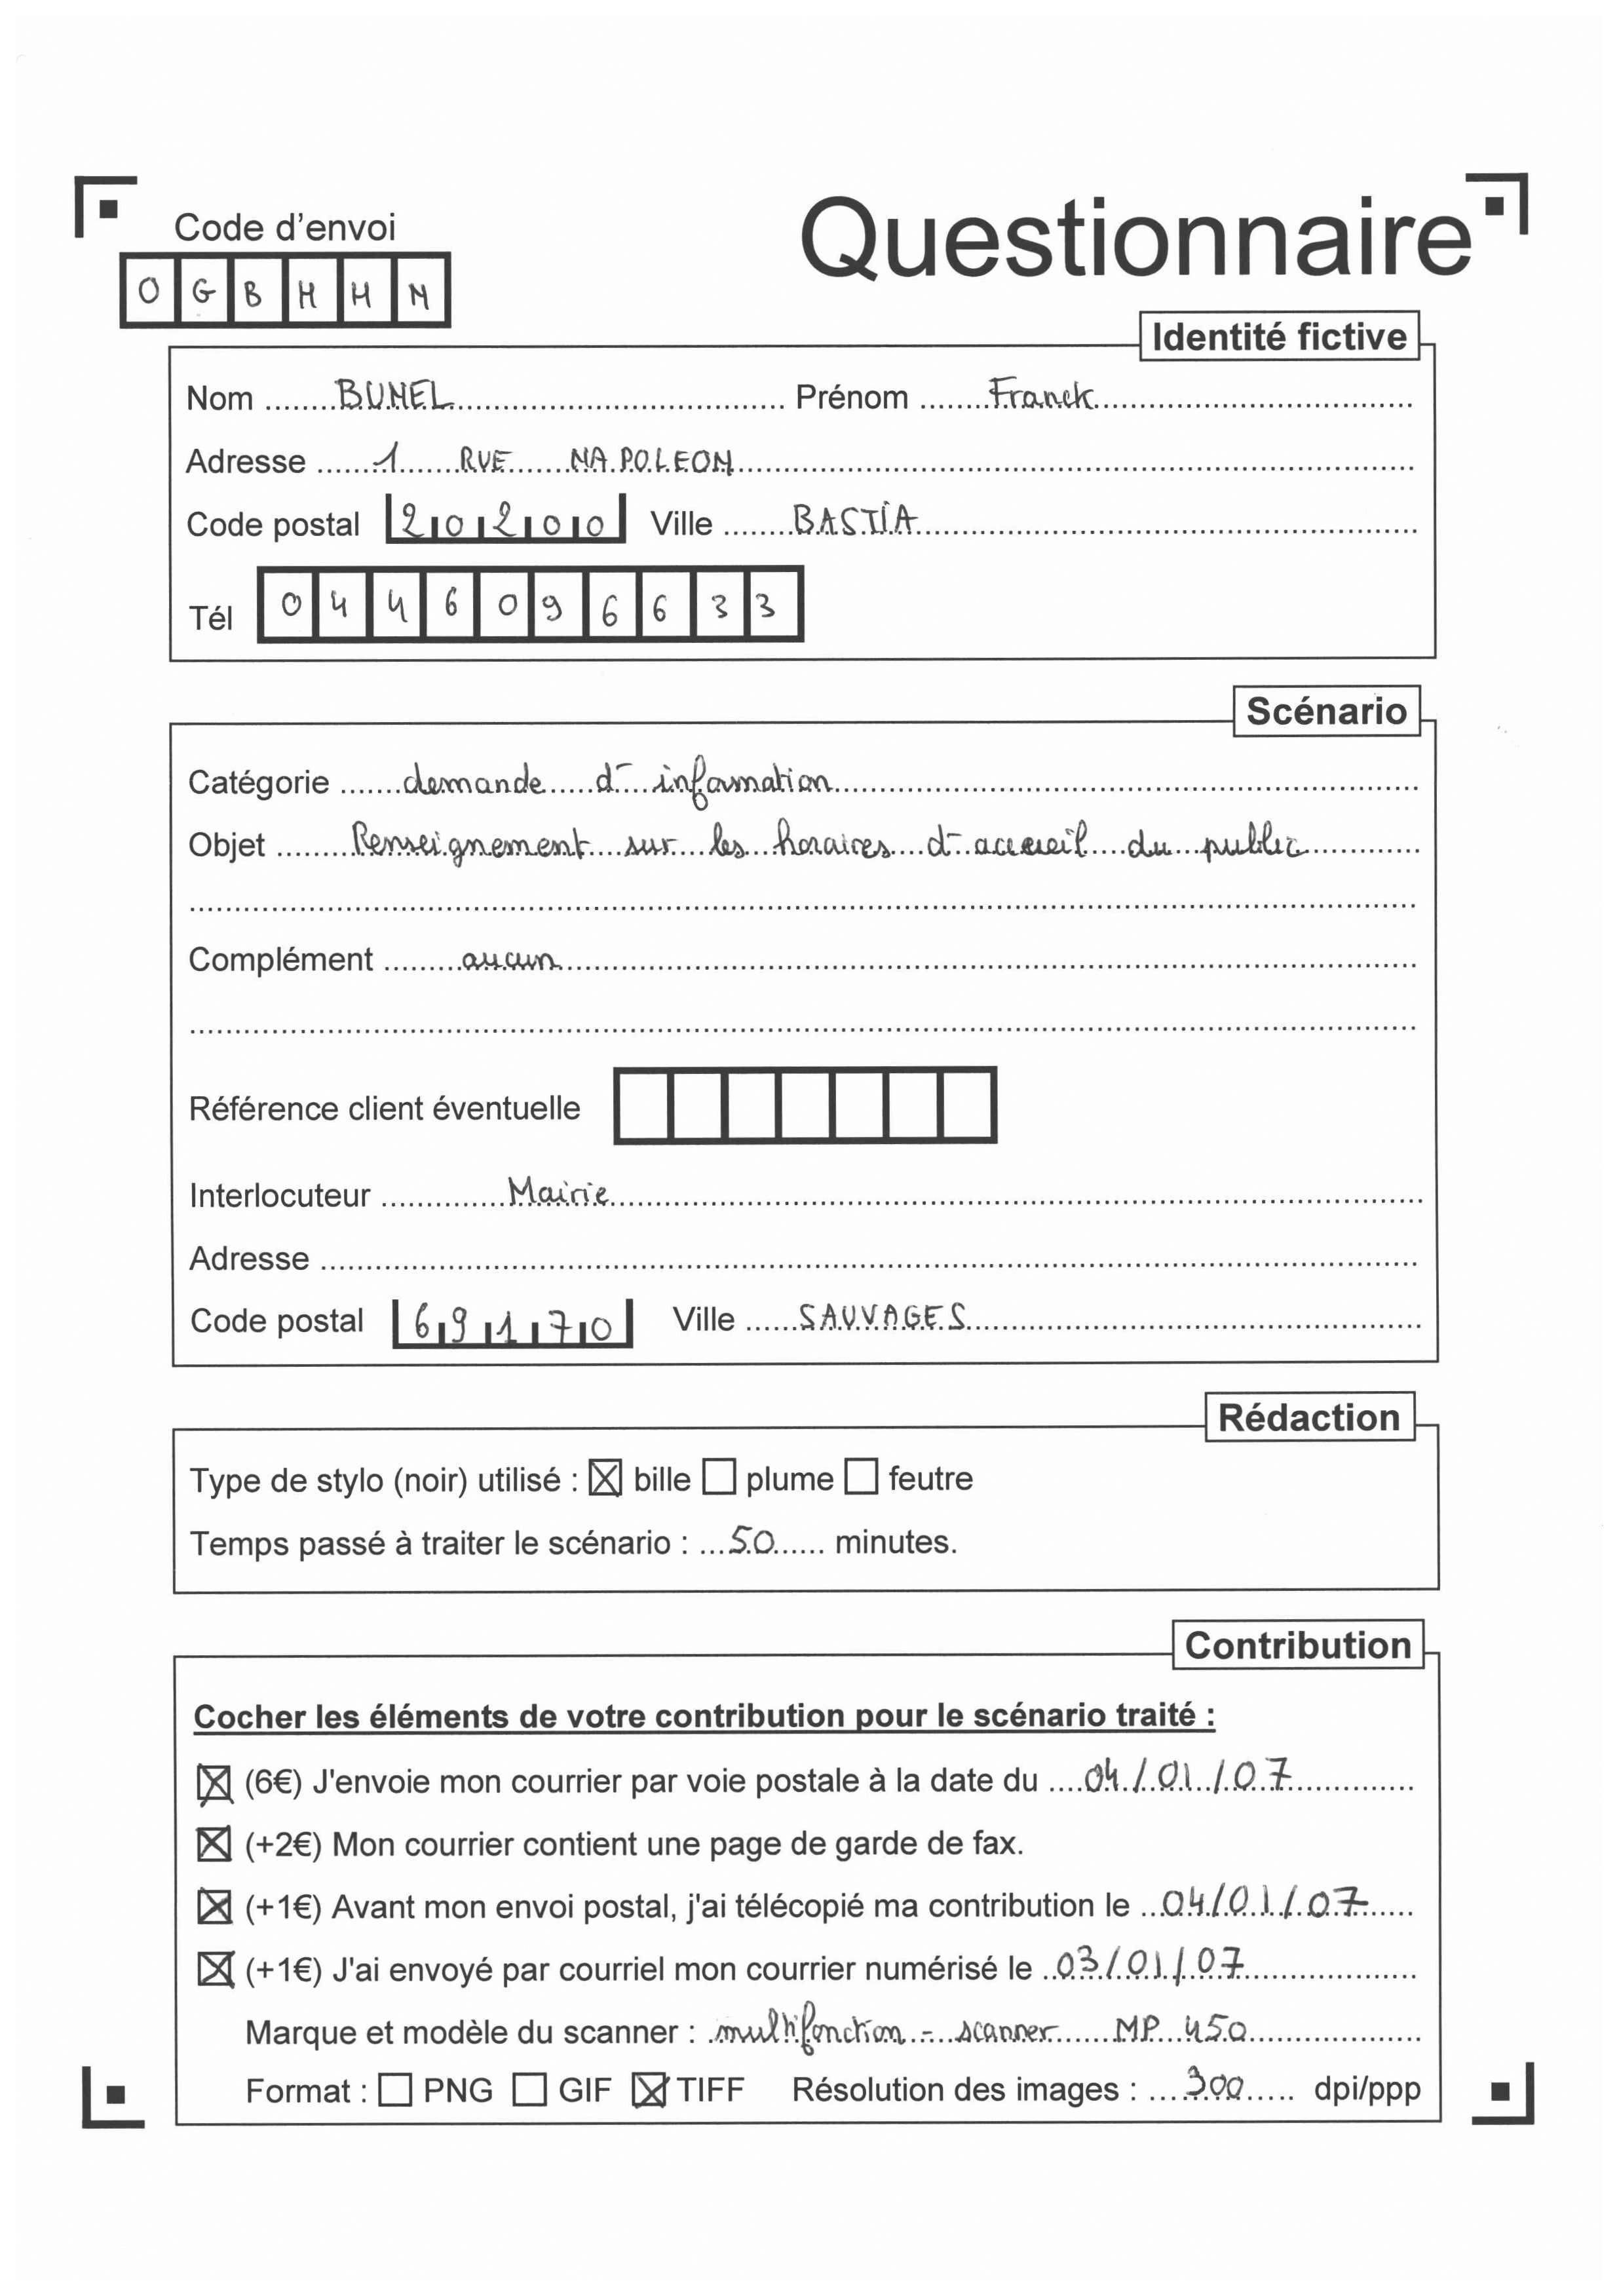 Code d'envoi
Questionnaire
O G B H H N
Identité fictive
Nom BUNEL Prénom Franck
Adresse 1 RUE NAPOLEON
Code postal 20200 Ville BASTIA
Tél 0446096633
Scénario
Catégorie demande d'information
Objet Renseignement sur les horaires d'accueil du public
Complément aucun
Référence client éventuelle
Interlocuteur Mairie
Adresse
Code postal 69170 Ville SAUVAGES
Rédaction
Type de stylo (noir) utilisé : ☒ bille ☐ plume ☐ feutre
Temps passé à traiter le scénario : 50 minutes.
Contribution
Cocher les éléments de votre contribution pour le scénario traité :
☒ (6€) J'envoie mon courrier par voie postale à la date du 04/01/07
☒ (+2€) Mon courrier contient une page de garde de fax.
☒ (+1€) Avant mon envoi postal, j'ai télécopié ma contribution le 04/01/07
☒ (+1€) J'ai envoyé par courriel mon courrier numérisé le 03/01/07
Marque et modèle du scanner : multifonction - scanner MP 450
Format : ☐ PNG ☐ GIF ☒ TIFF Résolution des images : 300 dpi/ppp